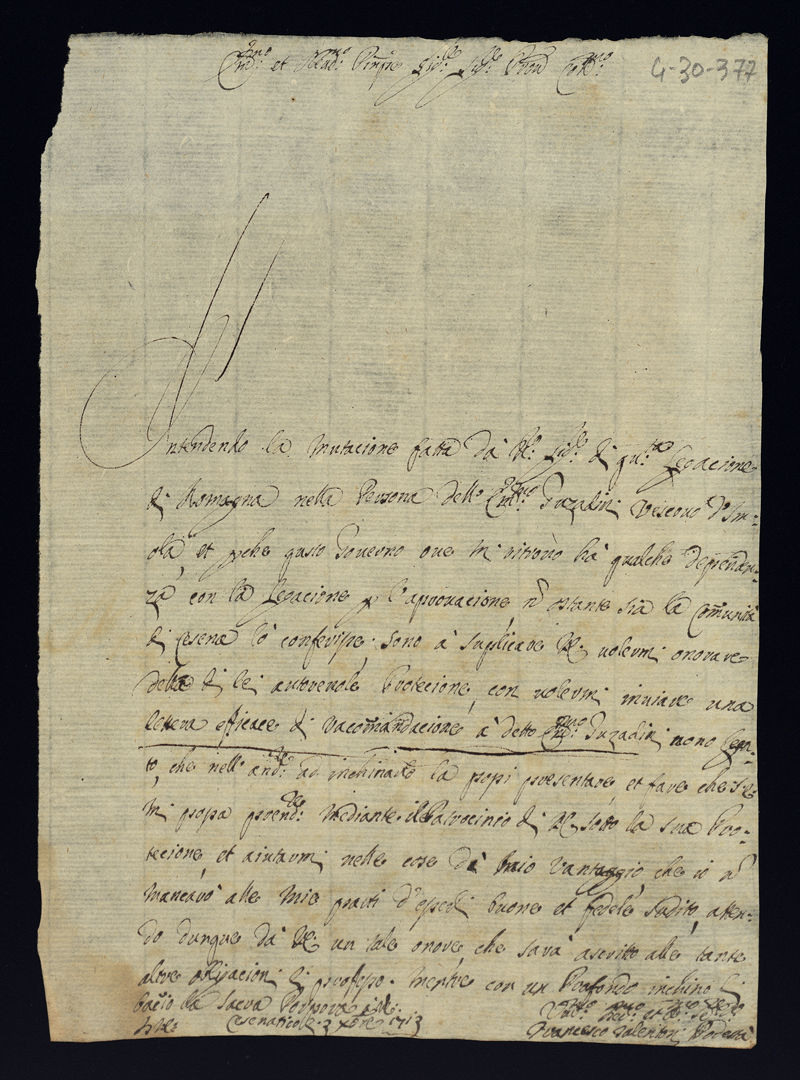 Em.mo et Rev.mo Prnpe Sig.re Sig.re Pron Col.mo
4-30-377
Intendendo la mutacione fatta da N.ro Sig.re di qu.sta Legacione
di Romagna nella Persona dell' Em.mo Gozadini Vescovo d'Im=
ola, et p che questo Governo ove mi ritrovo hà qualche dependen=
za con la Legacione p l'aprovacione, n ostante sia la Comunità
di Cesena lo conferisse. Sono à suplicare VE. volermi onorare
della di lei autorevole Protecione, con volermi inviare una
lettera efficace di racomandacione à detto Em.mo Gozadini novo Lega=
to, che nell' and.re ad inchinarlo la possi presentare et fare che S.E.
mi possa prend.re mediante il Patrocinio di VE. sotto la sua Pro=
tecione, et aiutarmi nelle cose di mio vantaggio, che io n
mancarò alle mie parti d'esserli buono et fedele sudito, atten=
do dunque da VE un tale onore che sarà ascritto alle tante
altre obligacioni li professo. Mentre con un Profondo inchino li
bacio la Sacra Porpora
Di VE. Cesenatico li 3 Xbre 1713
Francesco Valentini Podestà